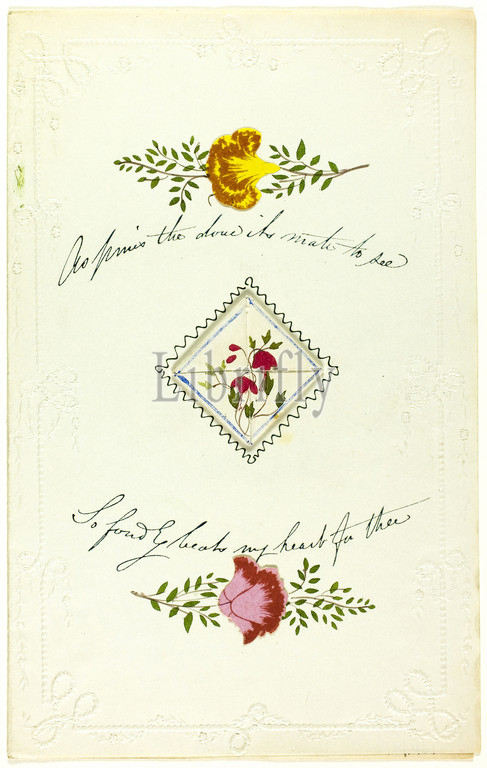 As pines the dove its mate to see
Librifly
So fondly beats my heart for thee